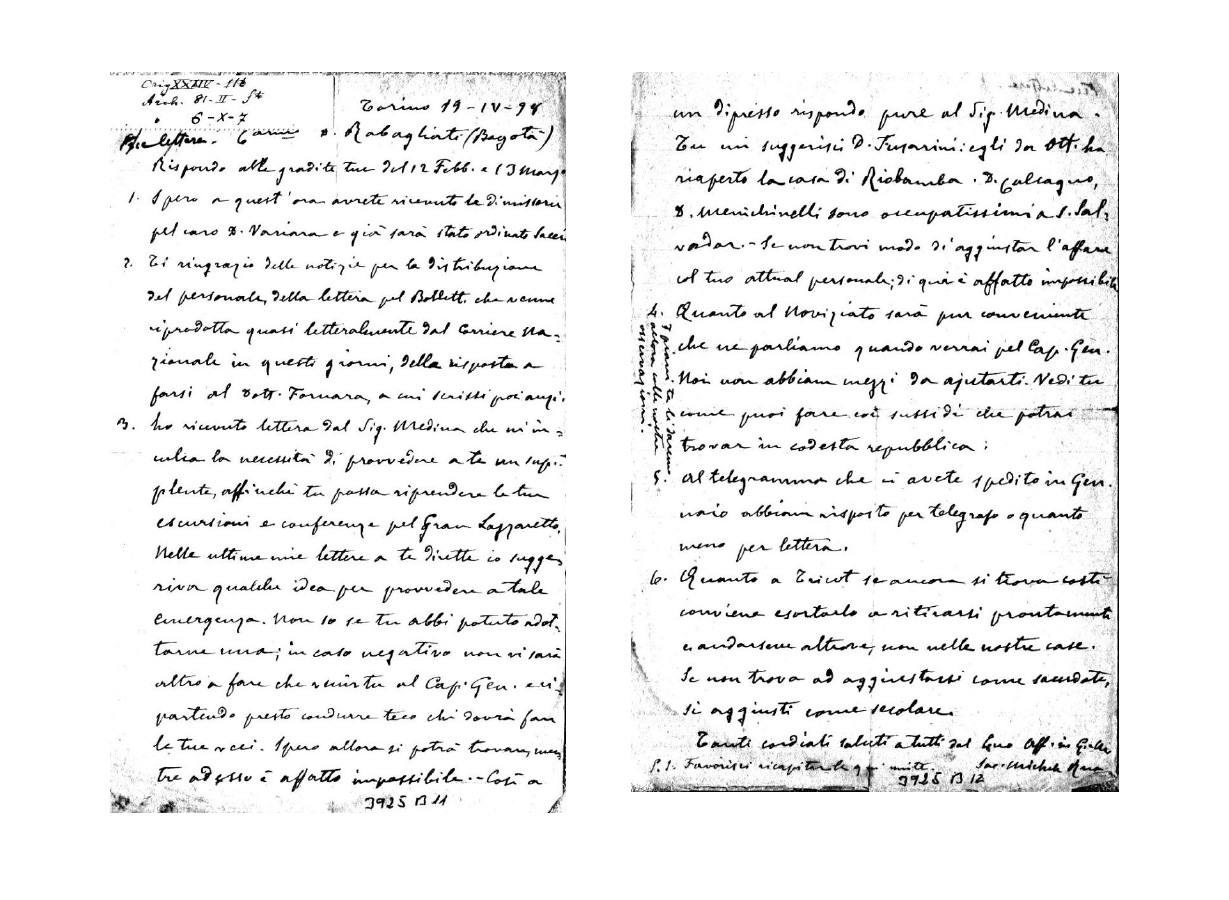 Orig XXXIV - 116
Arch. 81-II-
6-X-7
Torino 19-IV-98
Car.mo D. Rabagliati (Bogotà)
Rispondo alle gradite tue del 12 Febb. e 13 Marzo
1. Spero a quest'ora avrete ricevuto le dimissorie
pel caro D. Variara e già sarà stato ordinato Sacer
2. Ti ringrazio delle notizie per la distribuzione
del personale, della lettera pel Bollett. che venne
riprodotta quasi letteralmente dal Corriere Na-
zionale in questi giorni, della risposta a
farsi al Dott. Fornara, a cui scrissi poi anzi.
3. ho ricevuto lettera dal Sig. Medina che in-
culca la necessità di provvedere a te un sup-
plente, affinchè tu possa riprendere le tue
escursioni e conferenze pel Gran Lazzaretto,
Nelle ultime mie lettere a te dirette io sugge
riva qualche idea per provvedere a tale
emergenza. Non so se tu abbi potuto adot-
tarne una; in caso negativo non vi sarà
altro a fare che venir tu al Cap. Gen. e ri-
partendo presto condurre teco chi dovrà fare
le tue veci. Spero allora si potrà trovare, men
tre adesso è affatto impossibile. - Così a
3925 B 11
un dipresso rispondo pure al Sig. Medina.
Tu mi suggerisci D. Fusarini: egli da Ott. ha
riaperto la casa di Riobamba. D. Calcagno,
D. Menichinelli sono occupatissimi a S. Sal-
vador. - Se non trovi modo di aggiustar l'affare
col tuo attual personale; di qui è affatto impossibile
4. Quanto al Noviziato sarà pur conveniente
che ne parliamo quando verrai pel Cap. Gen.
Noi non abbiam mezzi da ajutarti. Vedi tu
come puoi fare coi sussidi che potrai
trovar in codesta repubblica:
I piani te li daremo
allora colle nostre
osservazioni.
5. Al telegramma che ci avete spedito in Gen.
naio abbiam risposto per telegrafo o quanto
meno per lettera.
6. Quanto a Tricot se ancora si trova costì
conviene esortarlo a ritirarsi prontamente
e andarsene altrove, non nelle nostre case.
Se non trova ad aggiustarsi come sacerdote,
si aggiusti come secolare.
Tanti cordiali saluti a tutti dal tuo Aff. in G.
P.S. Favorisci ricapitar le qui unite. Sac. Michele Rua
3925 B 12